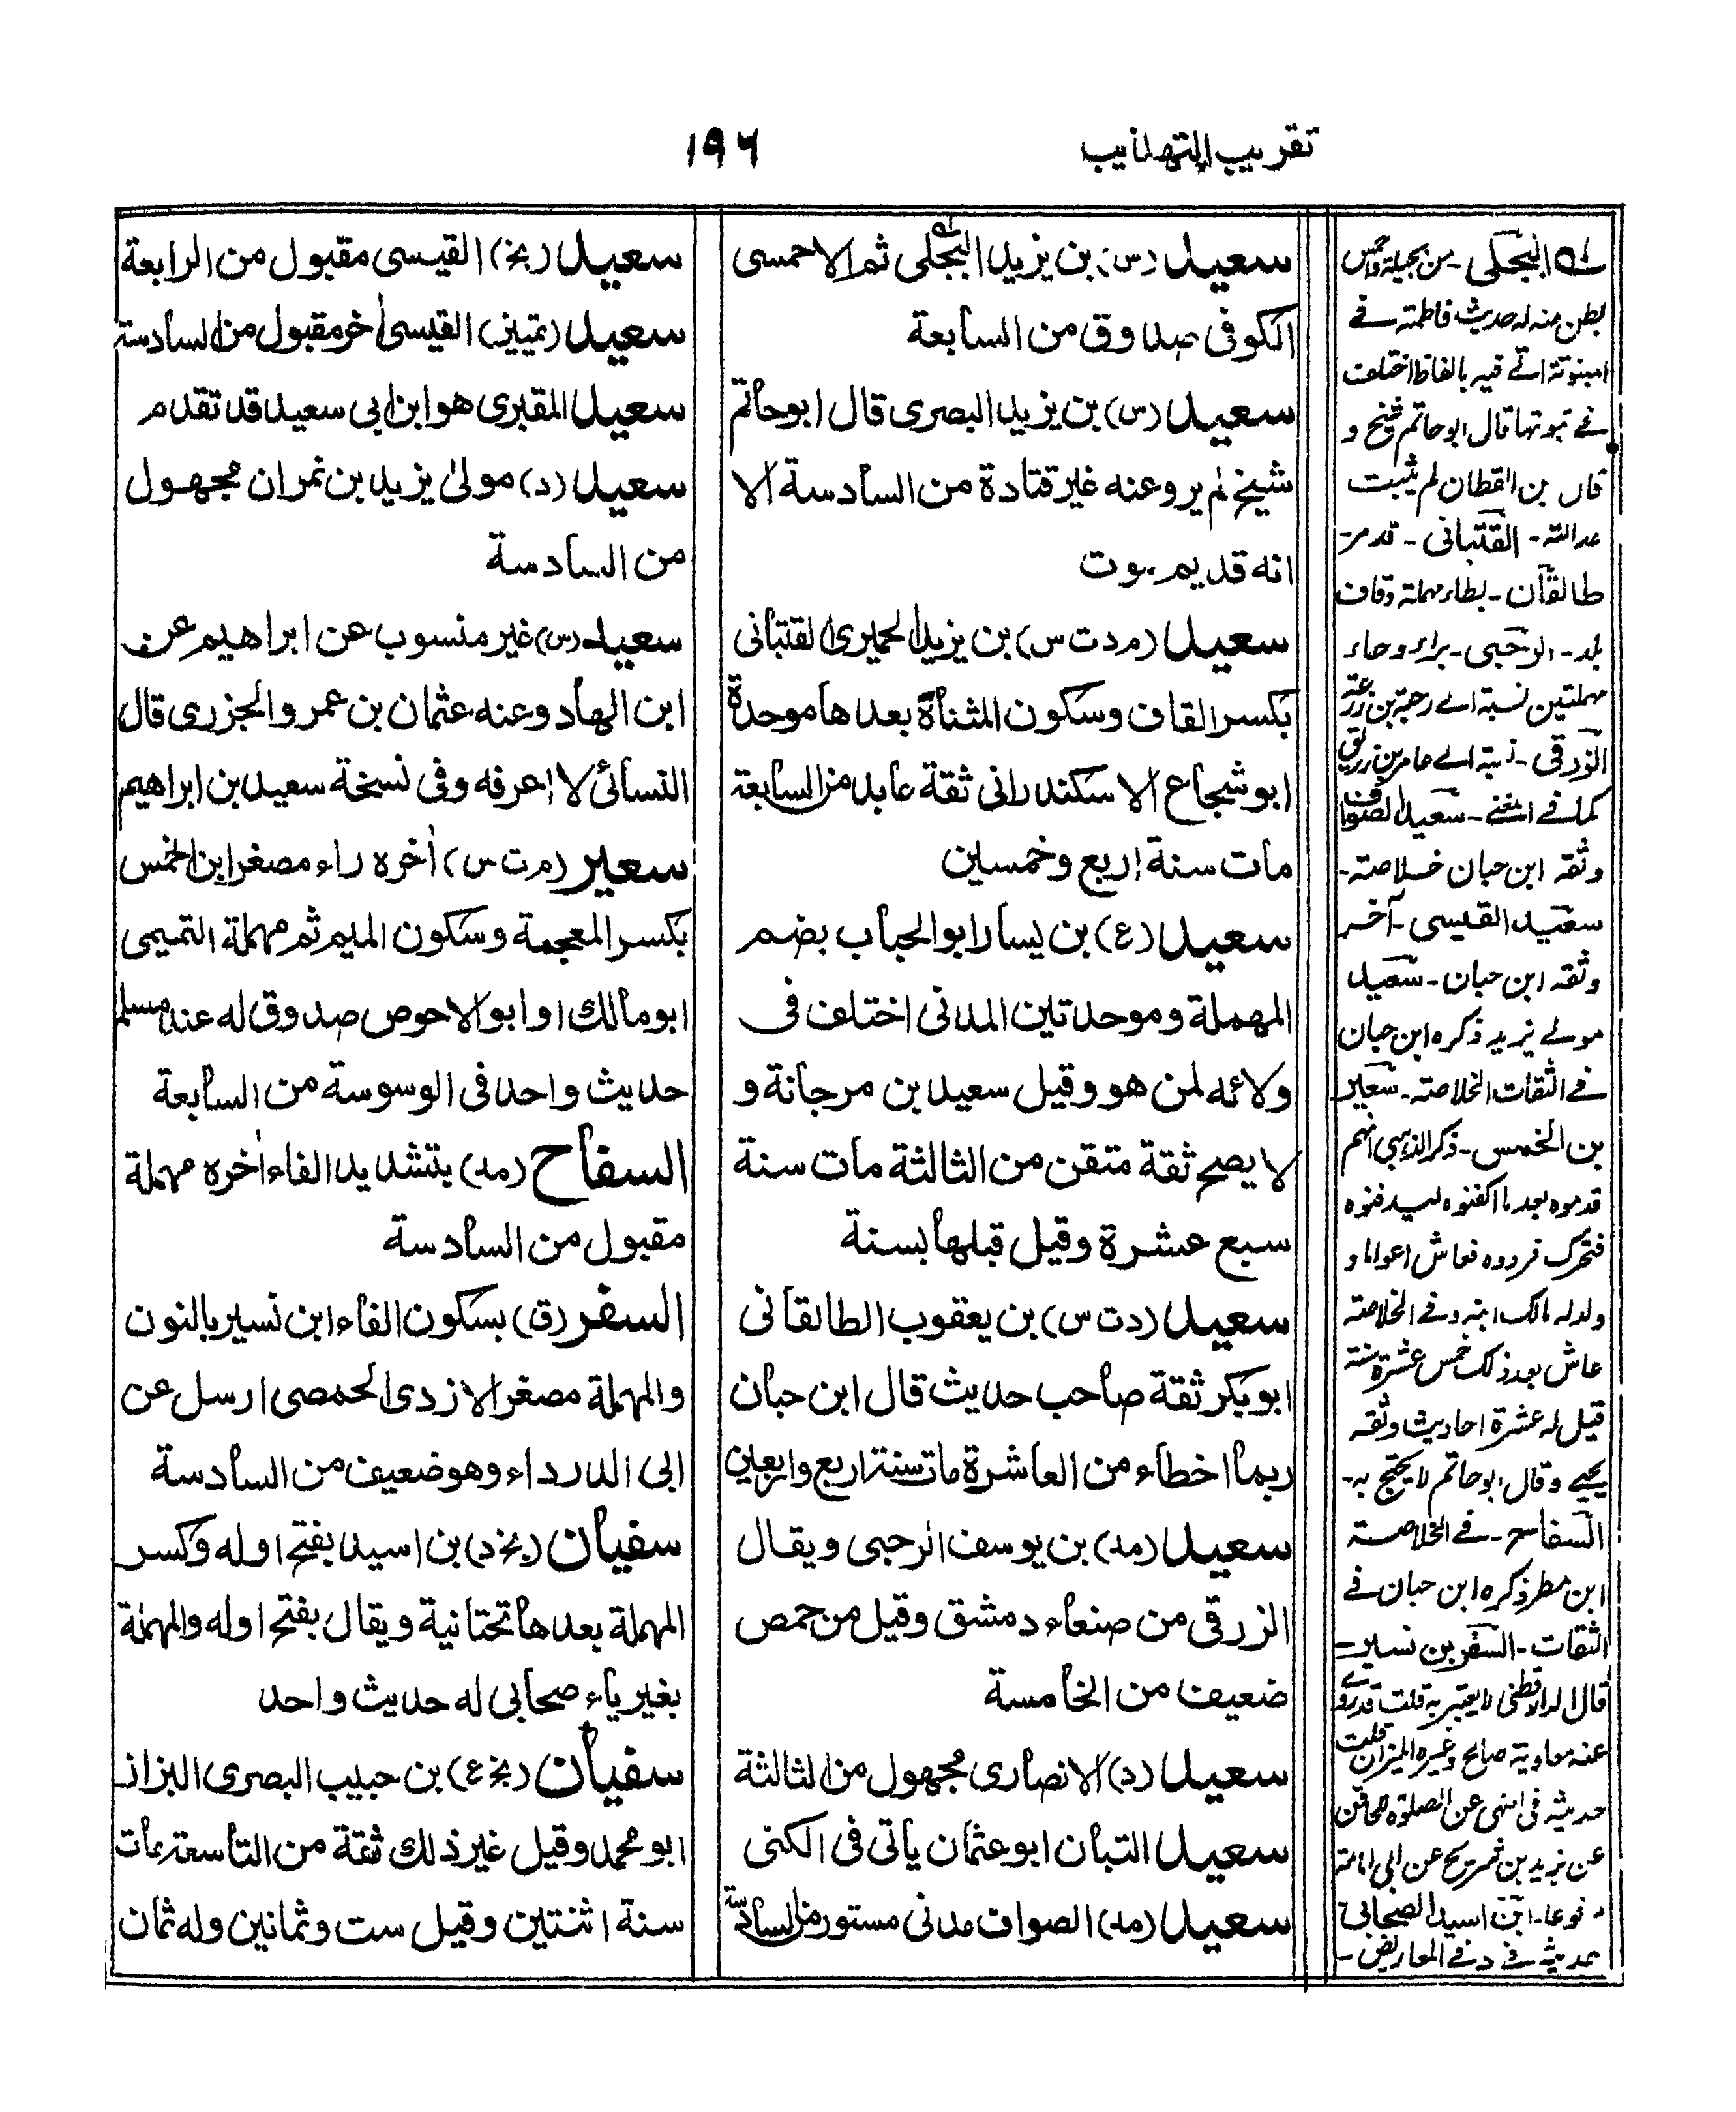 تقريب التهذيب
١٩٦
سعيد (س) بن يزيد البجلى ثم الاحمسى
الكوفى صدوق من السابعة
سعيد (س) بن يزيد البصرى قال ابوحاتم
شيخ لم يرو عنه غير قتادة من السادسة الا
انه قديم موت
سعيد (م د ت س) بن يزيد الحميرى القتبانى
بكسر القاف وسكون المثناة بعدها موحدة
ابو شجاع الاسكندرانى ثقة عابد من السابعة
مات سنة اربع وخمسين
سعيد (ع) بن يسار ابو الحباب بضم
المهملة وموحدتين المدنى اختلف فى
ولائه لمن هو وقيل سعيد بن مرجانة و
لا يصح ثقة متقن من الثالثة مات سنة
سبع عشرة وقيل قبلها بسنة
سعيد (د ت س) بن يعقوب الطالقانى
ابوبكر ثقة صاحب حديث قال ابن حبان
ربما اخطاء من العاشرة مات سنة اربع واربعين
سعيد (مد) بن يوسف الرحبى ويقال
الزرقى من صنعاء دمشق وقيل من حمص
ضعيف من الخامسة
سعيد (د) الانصارى مجهول من الثالثة
سعيد التبان ابو عثمان ياتى فى الكنى
سعيد (مد) الصواف مدنى مستور من السادسة
سعيد (بخ) القيسى مقبول من الرابعة
سعيد (تمييز) القيسى أخر مقبول من السادسة
سعيد المقبرى هو ابن ابى سعيد قد تقدم
سعيد (د) مولى يزيد بن نمران مجهول
من السادسة
سعيد (س) غير منسوب عن ابراهيم عن
ابن الهاد وعنه عثمان بن عمرو الجزرى قال
النسائى لا اعرفه وفى نسخة سعيد بن ابراهيم
سعير (م ت س) أخره راء مصغر ابن الخمس
بكسر المعجمة وسكون الميم ثم مهملة التميمى
ابو مالك او ابو الاحوص صدوق له عند مسلم
حديث واحد فى الوسوسة من السابعة
السفاح (مد) بتشديد الفاء أخره مهملة
مقبول من السادسة
السفر (ق) بسكون الفاء ابن نسير بالنون
والمهملة مصغر الازدى الحمصى ارسل عن
ابى الدرداء وهو ضعيف من السادسة
سفيان (بخ د) بن اسيد بفتح اوله وكسر
المهملة بعدها تحتانية ويقال بفتح اوله والمهملة
بغير ياء صحابى له حديث واحد
سفيان (بخ ع) بن حبيب البصرى البزاز
ابو محمد وقيل غير ذلك ثقة من التاسعة مات
سنة اثنتين وقيل ست وثمانين وله ثمان
له البجلى - من بجيلة واحمس
بطن منه له حديث فاطمة فے
قيه بالفاظ اختلف
فے ثبوتها قال ابوحاتم شيخ و
قال بن القطان لم يثبت
عدالته - القتبانى - قد مر -
طالقان - بطاء مهملة وقاف
بلد - الرحبى - براء وحاء
مهملتين نسبة الے رحبة بن زرعة
الزرقى - نسبة الے عامر بن زريق
كما فے المغنے - سعيد الصواف
وثقه ابن حبان خلاصة -
سعيد القيسى - آخر
وثقه ابن حبان - سعيد
مولے يزيد ذكره ابن حبان
فے الثقات الخلاصة - سعير
بن الخمس - ذكر الذهبى انهم
قدموه بعد ما اكفنوه ليدفنوه
فتحرك فردوه فعاش اعواما و
ولد له مالك ابنه وفے الخلاصة
عاش بعد ذلك خمس عشرة سنة
قيل له عشرة احاديث وثقه
يحيے وقال ابوحاتم لا يحتج به -
السفاح - فے الخلاصة
ابن مطر ذكره ابن حبان فے
الثقات - السفر بن نسير -
قال الدارقطنى لا يعتبر به قلت قد روے
عنه معاوية صالح وغيره الميزان قلت
حديثه فى النهى عن الصلوة للحاقن
عن يزيد بن شريح عن ابى امامة
مرفوعا - ابن اسيد الصحابى
حديثه فے د فے المعاريض -